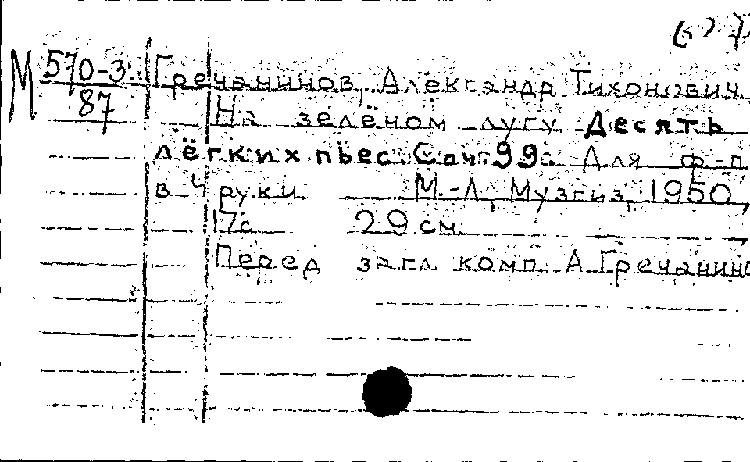 М 570-3 Гречанинов, Александр Тихонович
87 На зелёном лугу Десять
лёгких пьес. Соч. 99. Для ф-п
в 4 руки. М.-Л, Музгиз, 1950,
17с. 29 см.
Перед загл. комп. А. Гречанино